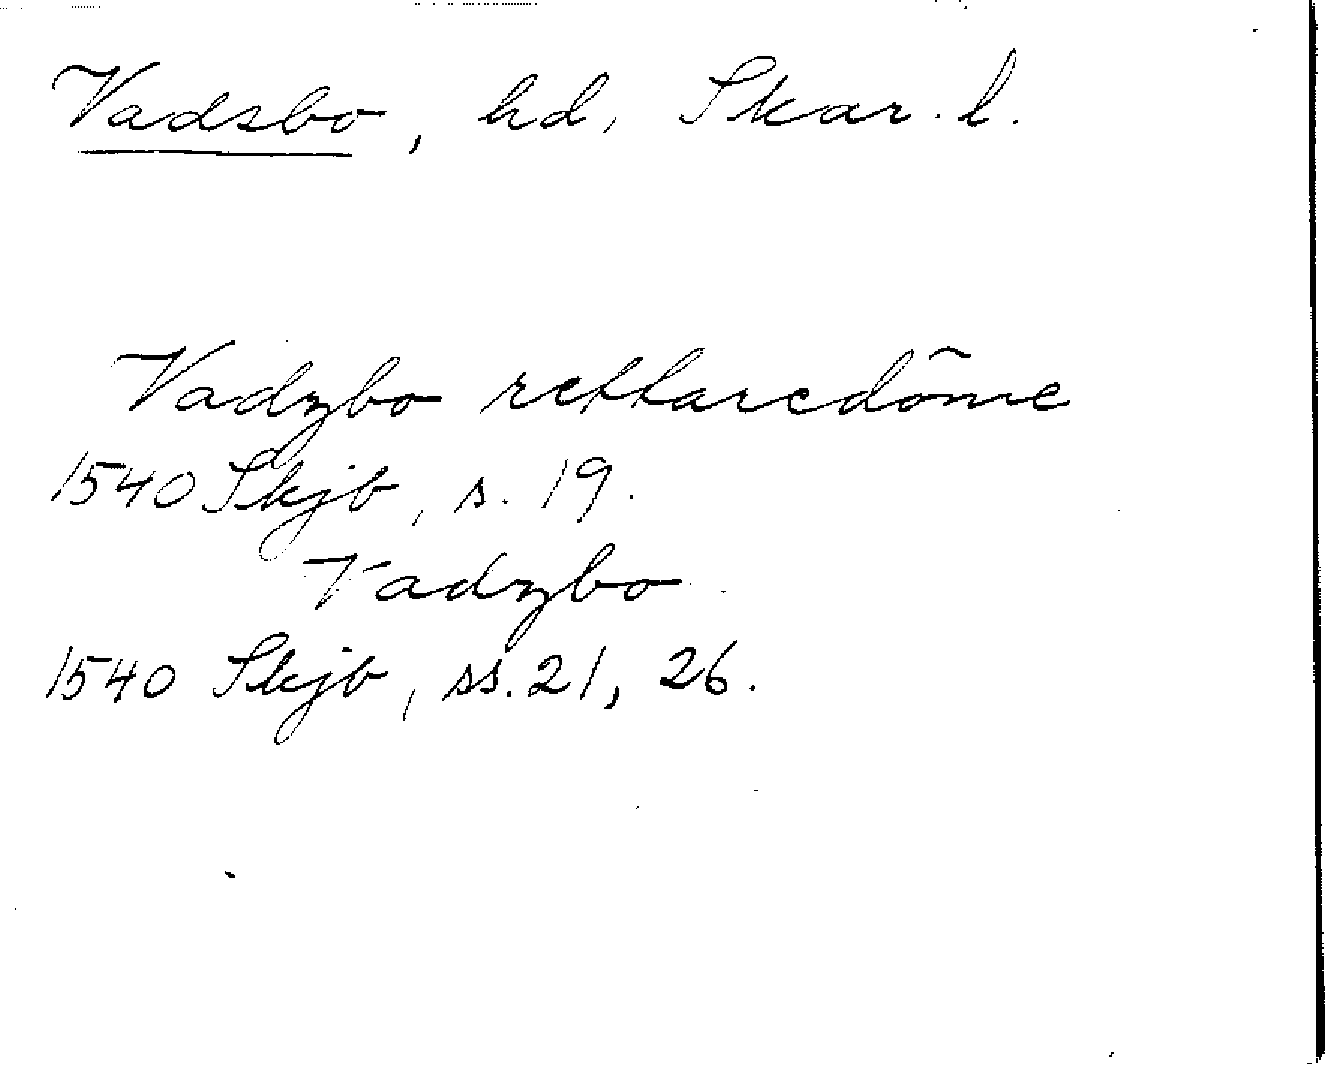 Vadsbo, hd, Skar. l.
Vadzbo rettaredõme
1540 Skjb, s. 19.
Vadzbo
1540 Skjb, ss. 21, 26.